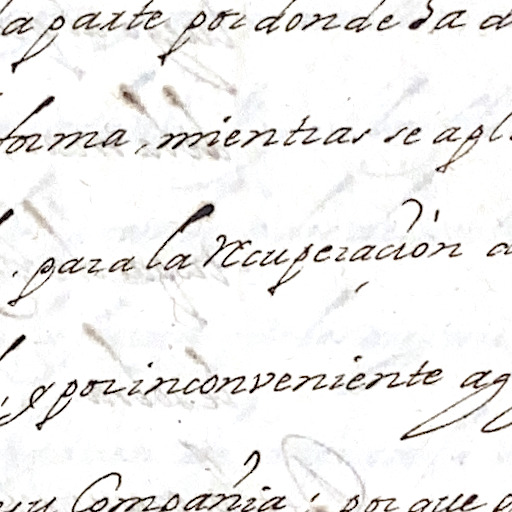 la parte por donde da a
forma, mientras se apl
. para la recuperación a
, y por inconveniente ag
su Compañía; por que